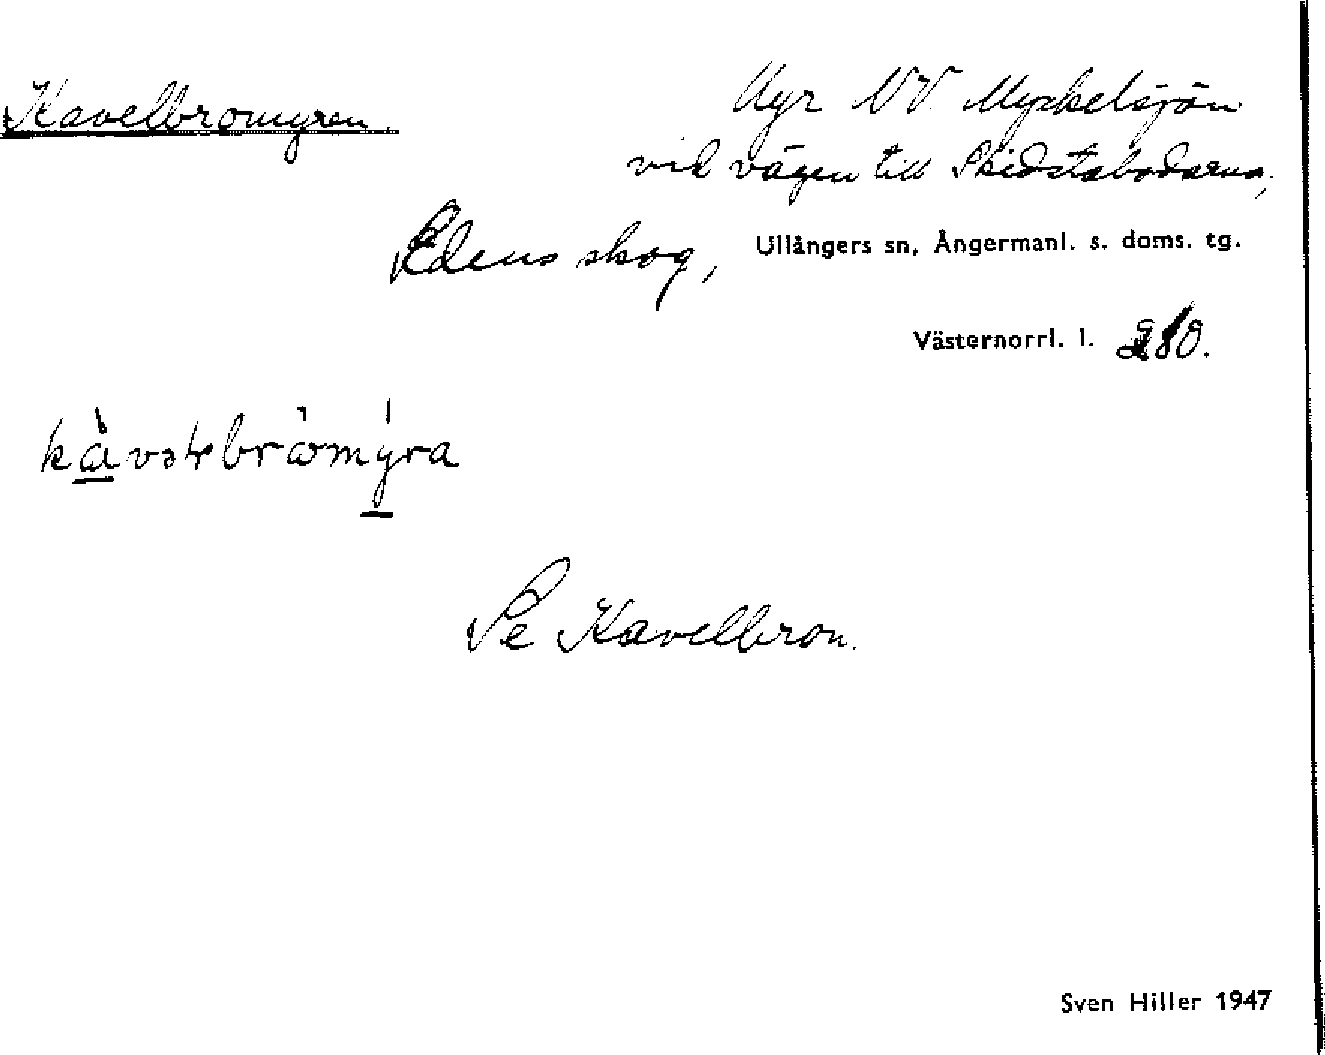 Kavelbromyren.
Myr NV. Myckelsjön
vid vägen till Skidstabodarna,
Edens skog, Ullångers sn, Ångermanl. s. doms. tg.
Västernorrl. l.
Se Kavelbron.
Sven Hiller 1947